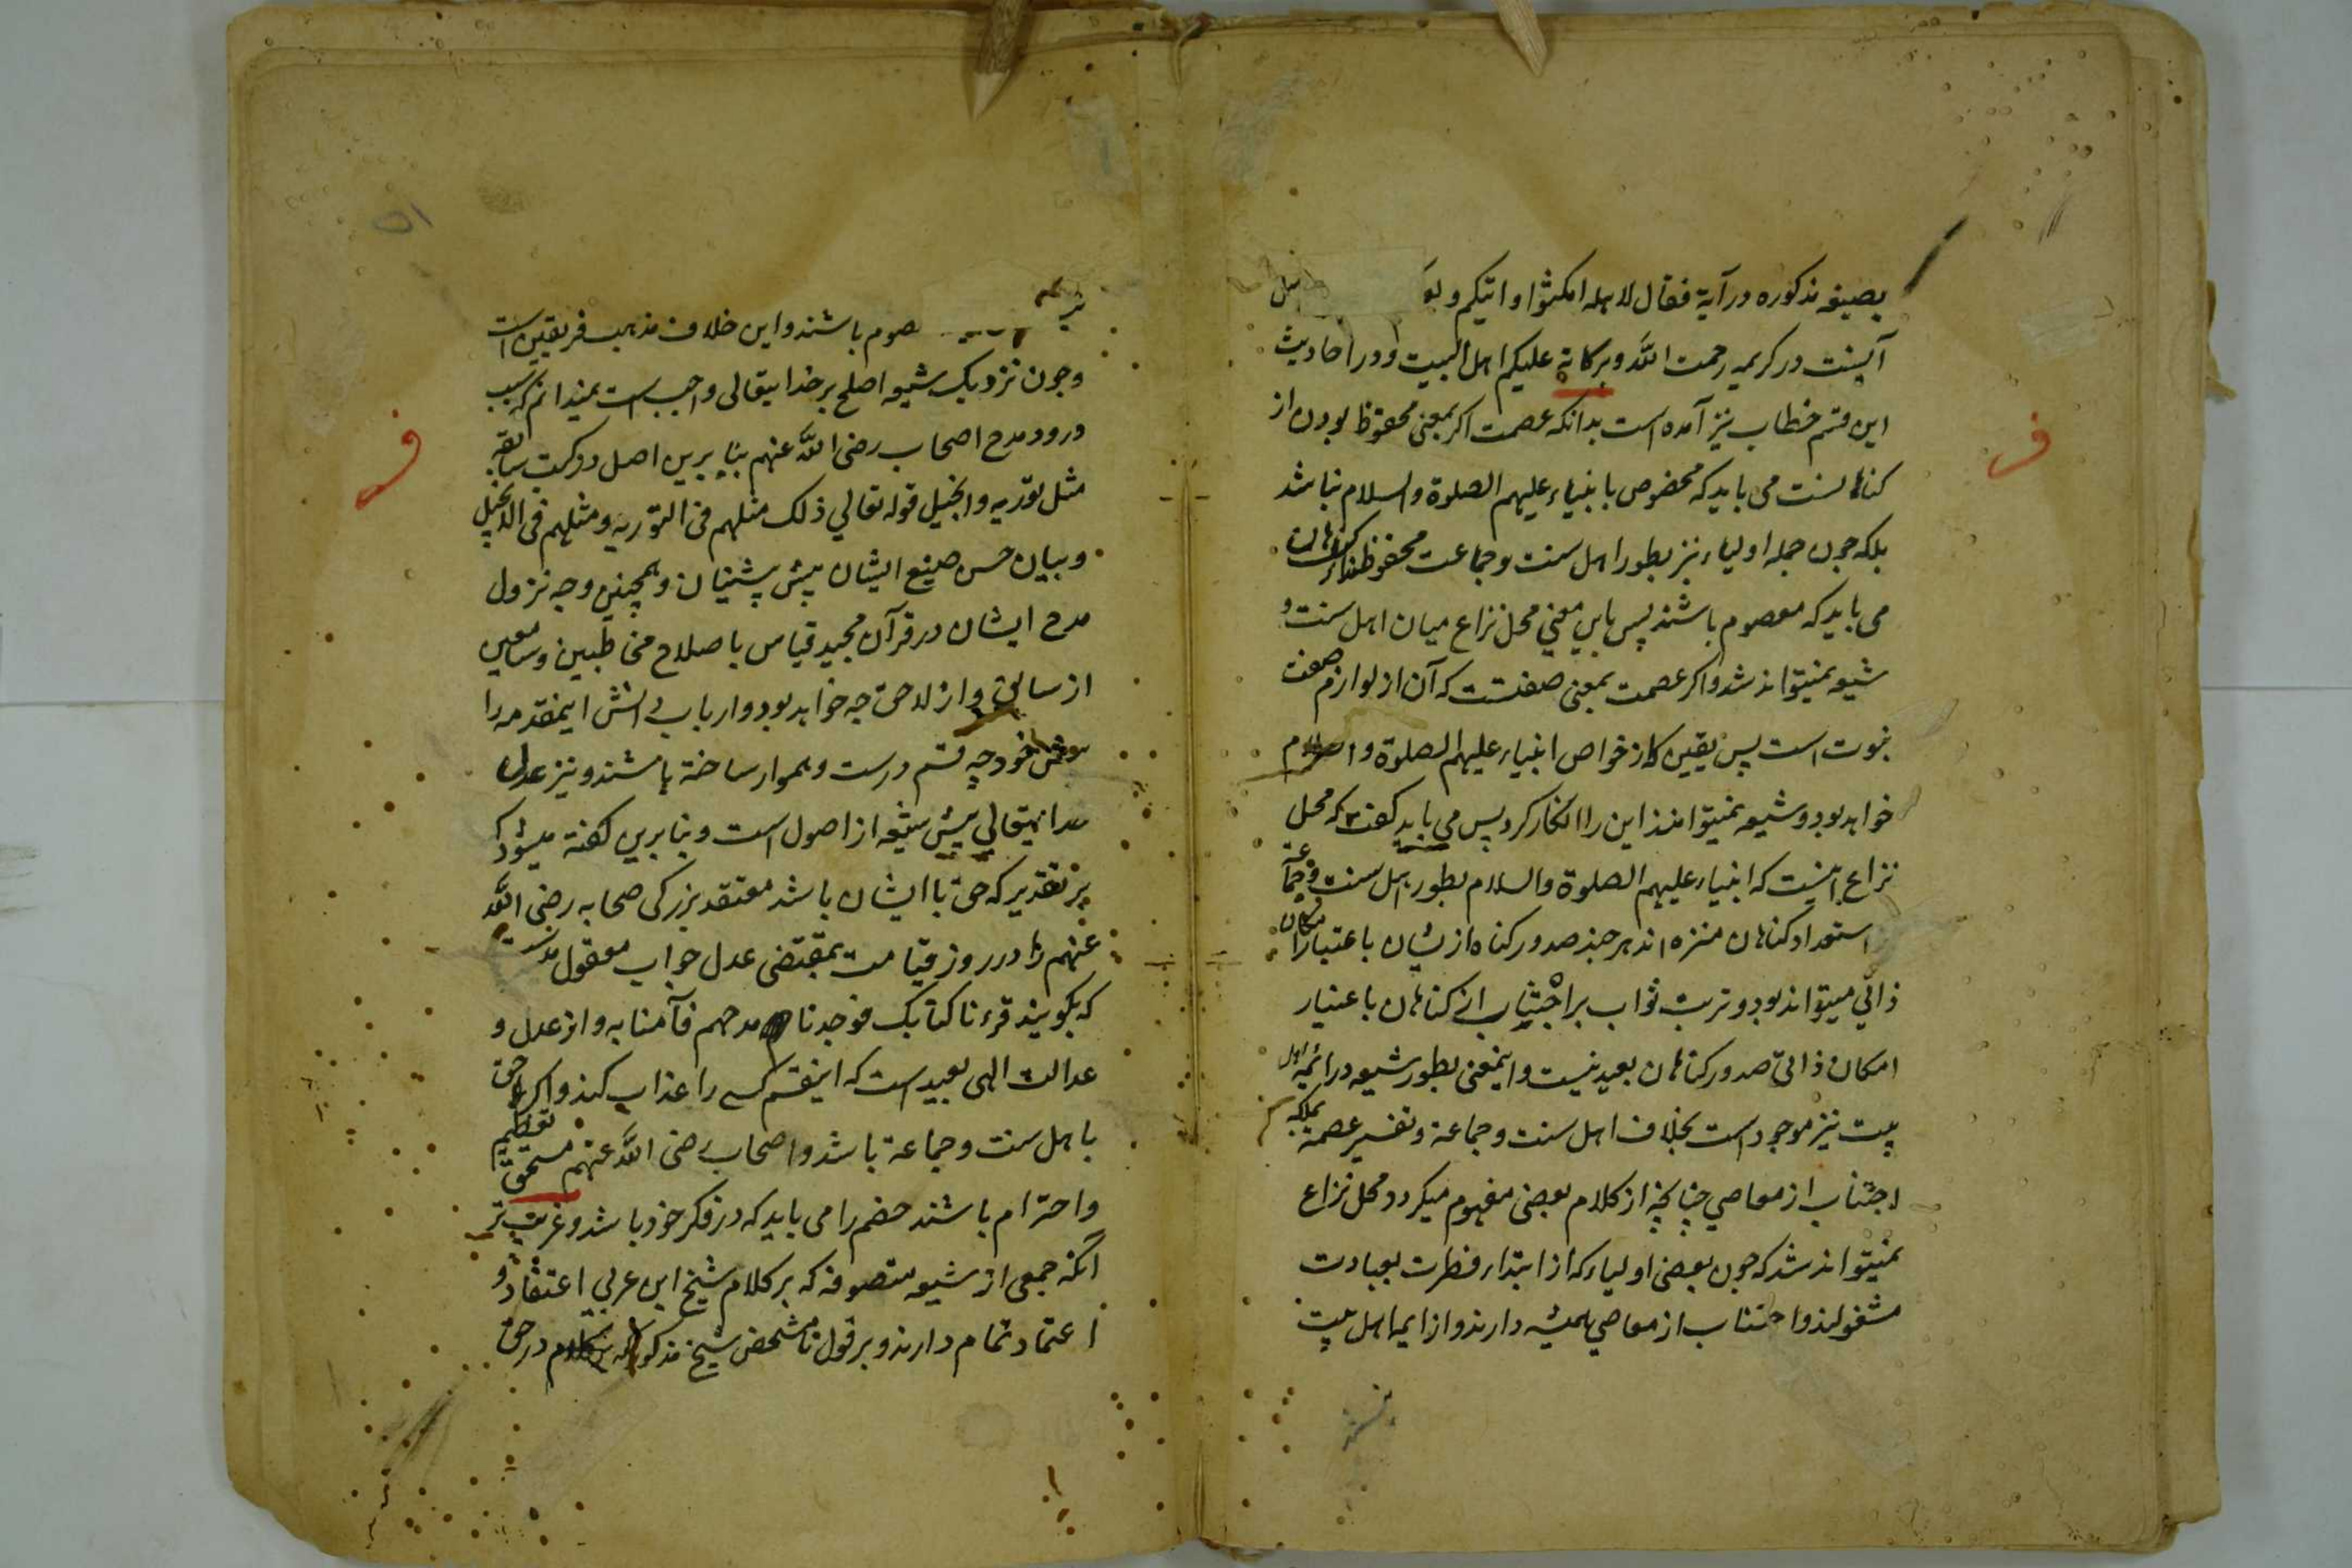 بصیغه مذکوره در آیة فقال لاهله امکثوا و اتیکم و
آنست در کریمه رحمت الله وبرکاته علیکم اهل البیت و در احادیث
این قسم خطاب نیز آمده است بدانکه عصمت اکر بمعنی محفوظ بودن از
کناهانست می باید که مخصوص بانبیاء علیهم الصلوة والسلام نباشد
بلکه چون جمله اولیاء نیز بطور اهل سنت وجماعت محفوظند از کناهان
می باید که معصوم باشند پس باین معنی محل نزاع میان اهل سنت و
شیعه نمیتواند شد واکر عصمت بمعنی صفتست که آن از لوازم صفت
نبوت است پس بیقین که از خواص انبیاء علیهم الصلوة والسلام
خواهد بود و شیعه نمیتوانند این را انکار کرد پس می باید کفت که محل
نزاع اینست که انبیاء علیهم الصلوة والسلام بطور اهل سنت وجماعة
استعداد کناهان منزه اند هر چند صدور کناه از یشان باعتبار امکان
ذاتی میتواند بود و ترتب ثواب بر اجتناب از کناهان باعتبار
امکان ذاتی صدور کناهان بعید نیست و اینمعنی بطور شیعه در ائمه اهل
بیت نیز موجود است بخلاف اهل سنت وجماعة و تفسیر عصمة بملکه
اجتناب از معاصی چنانچه از کلام بعضی مفهوم میکردد محل نزاع
نمیتواند شد که چون بعضی اولیاء که از ابتداء فطرت بعبادت
مشغولند و اجتناب از معاصی همیشه دارند و از ایمه اهل بیت
صوم باشند و این خلاف مذهب فریقین است
وچون نزدیک شیعه اصلح بر خدایتعالی واجب است نمیدانم که سبب
ورود مدح اصحاب رضی الله عنهم بنا برین اصل در کتب سابقه
مثل توریه وانجیل قوله تعالی ذلک مثلهم فی التوریه ومثلهم فی الانجیل
وبیان حسن صنیع ایشان پیش پیشینیان وهمچنین وجه نزول
مدح ایشان در قرآن مجید قیاس باصلاح مخاطبین وسامعین
از سابق و از لاحق چه خواهد بود و ارباب دانش اینمقدمه را
خود چه قسم درست وهموار ساخته باشند و نیز عدل
خدایتعالی پیش شیعه از اصول است و بنا برین کفته میشود که
بر تقدیر که حق با ایشان باشد معتقد بزرکی صحابه رضی الله
عنهم را در روز قیامت بمقتضی عدل جواب معقول هست
که بکویند قرءنا کتابک فوجدنا مدحهم فآمنا به و از عدل و
عدالت الهی بعید است که اینقسم کسی را عذاب کند و اکر حق
با اهل سنت وجماعة باشد و اصحاب رضی الله عنهم مستحق تعظیم
واحترام باشند خصم را می باید که در فکر خود باشد و غریب تر
آنکه جمعی از شیعه متصوفه که بر کلام شیخ ابن عربی اعتقاد و
اعتماد تمام دارند و بر قول نامشخص شیخ مذکور در حق